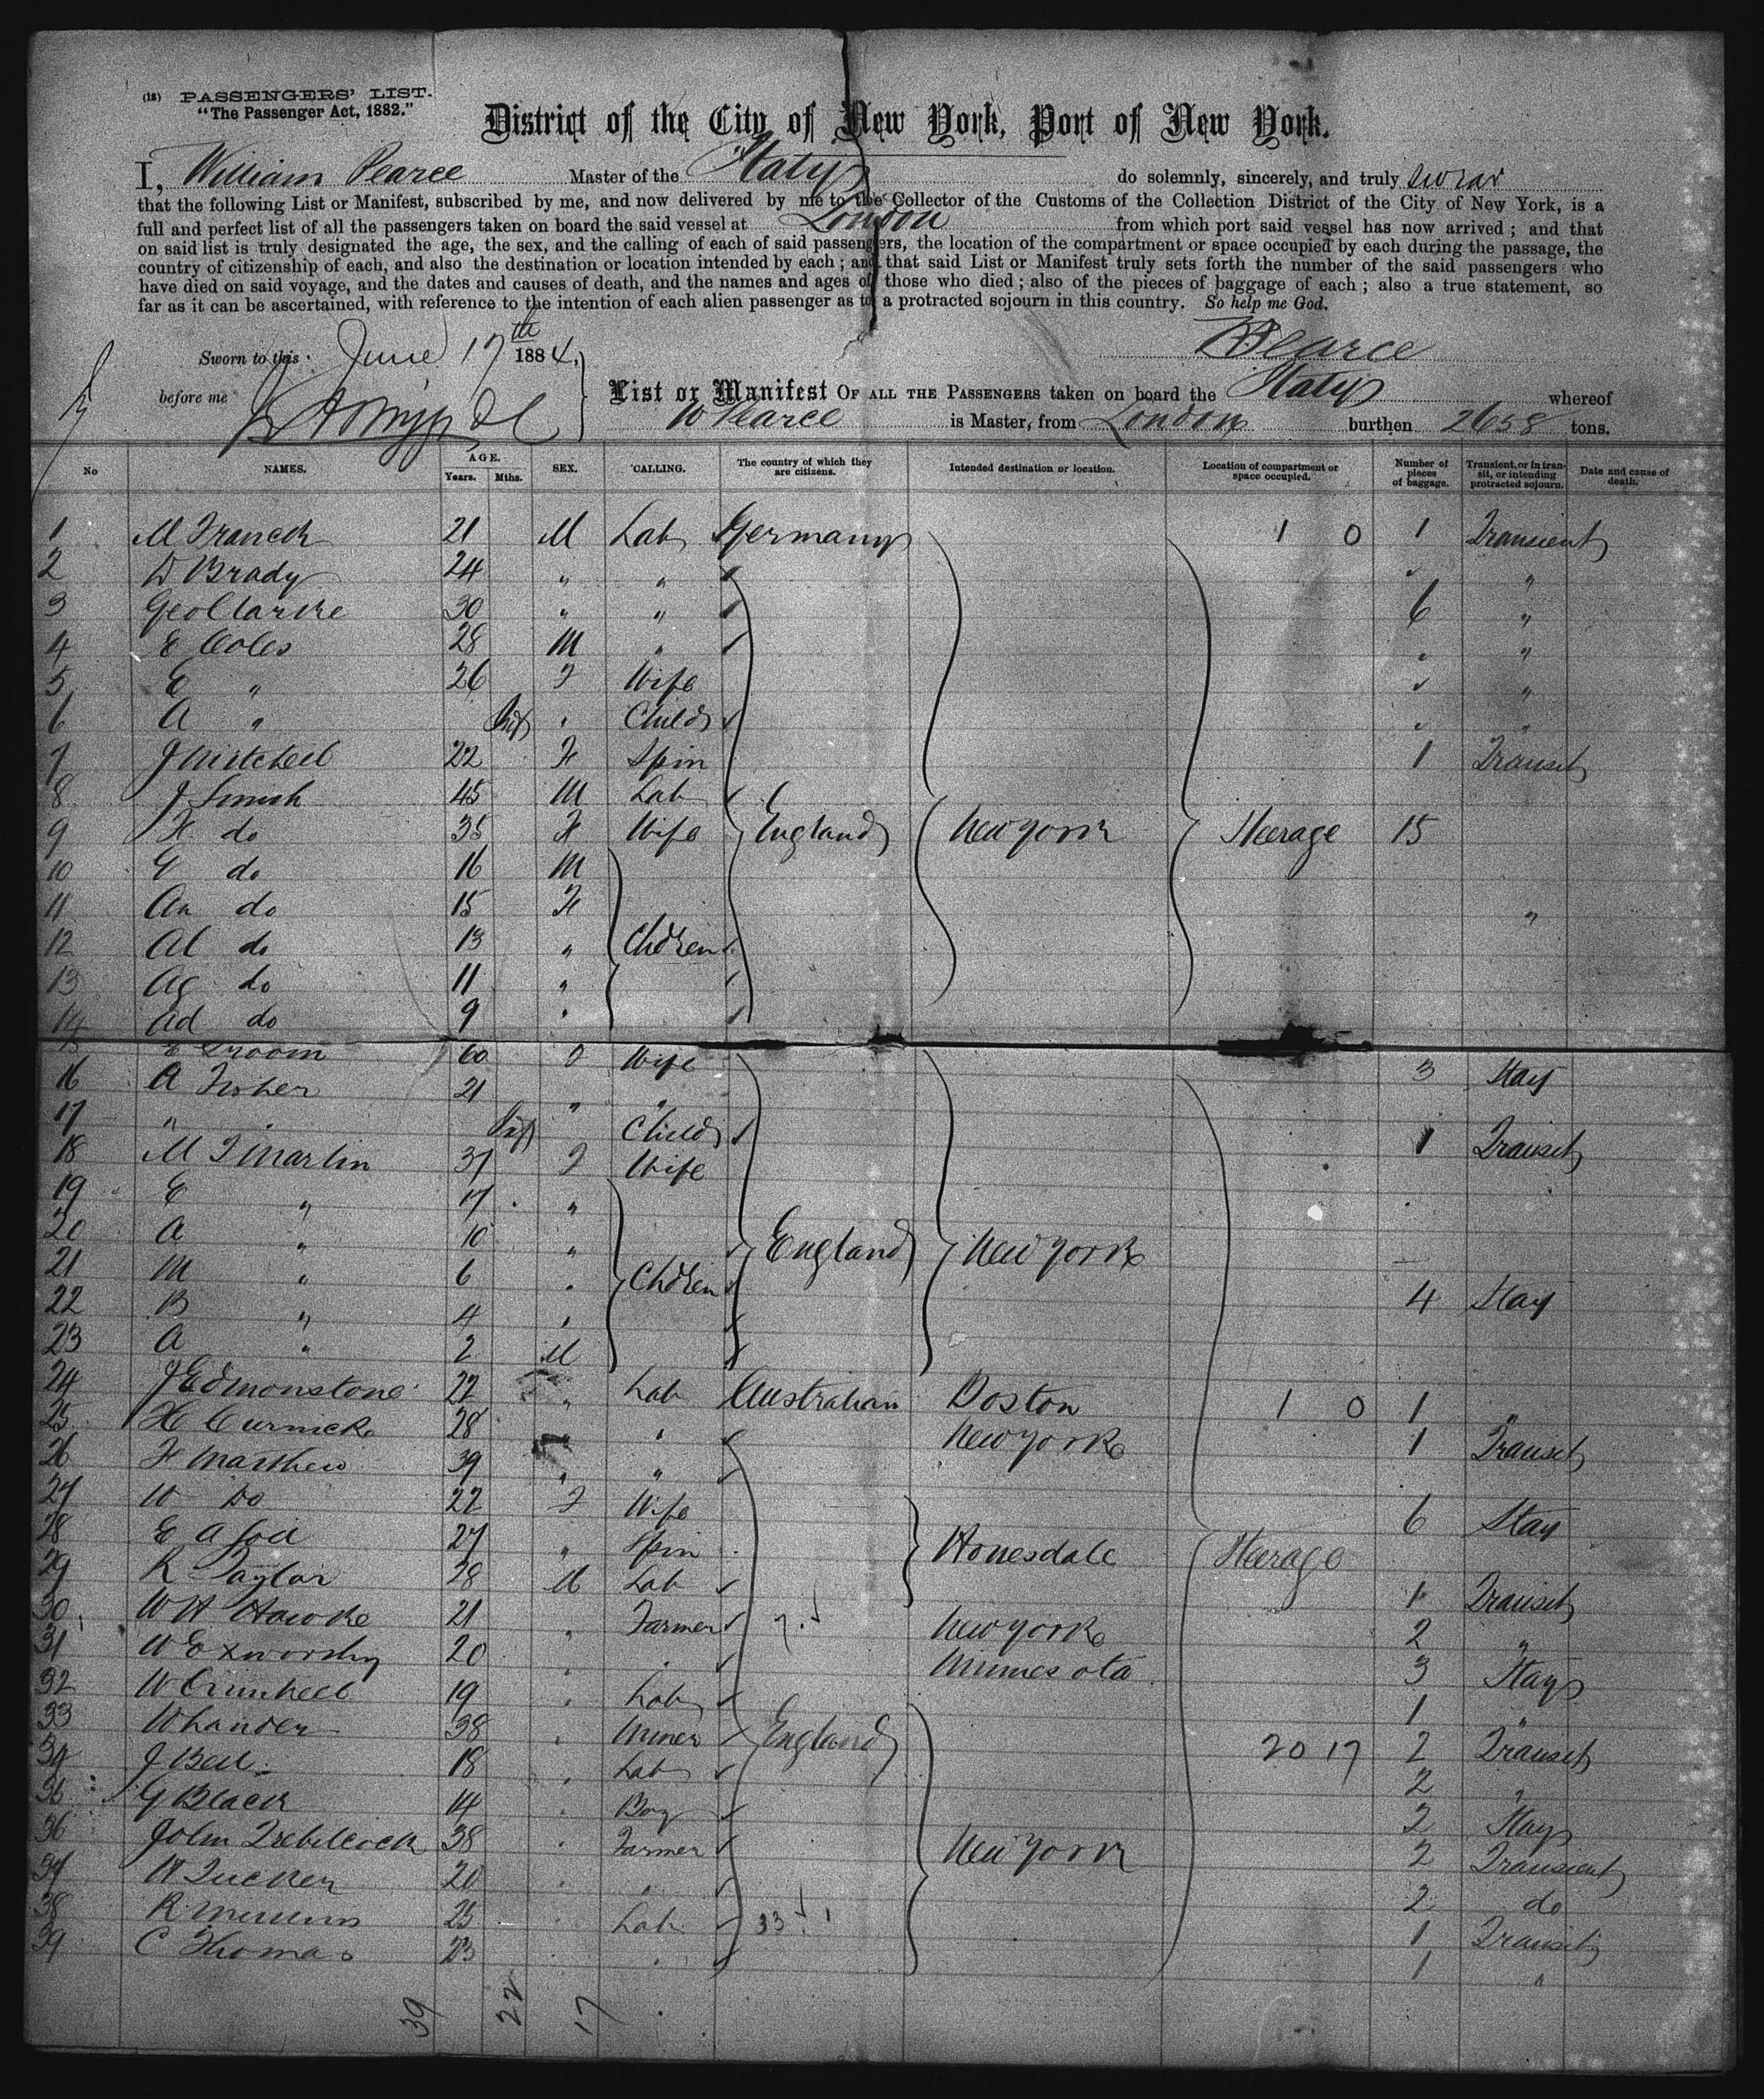 (18) PASSENGERS' LIST.
"The Passenger Act, 1882."
District of the City of New York, Port of New York.
I, William Pearce Master of the "Italy" do solemnly, sincerely, and truly swear
that the following List or Manifest, subscribed by me, and now delivered by me to the Collector of the Customs of the Collection District of the City of New York, is a
full and perfect list of all the passengers taken on board the said vessel at London from which port said vessel has now arrived; and that
on said list is truly designated the age, the sex, and the calling of each of said passengers, the location of the compartment or space occupied by each during the passage, the
country of citizenship of each, and also the destination or location intended by each; and that said List or Manifest truly sets forth the number of the said passengers who
have died on said voyage, and the dates and causes of death, and the names and ages of those who died; also of the pieces of baggage of each; also a true statement, so
far as it can be ascertained, with reference to the intention of each alien passenger as to a protracted sojourn in this country. So help me God.
W Pearce
Sworn to this June 17th 1884.
before me
List or Manifest OF ALL THE PASSENGERS taken on board the Italy whereof
W Pearce is Master, from London burthen 2658 tons.
No NAMES. AGE. Years. Mths. SEX. CALLING. The country of which they are citizens. Intended destination or location. Location of compartment or space occupied. Number of pieces of baggage. Transient, or in transit, or intending protracted sojourn. Date and cause of death.
1 M Franck 21 M Lab Germany 1 0 1 Transient
2 D Brady 24 " " "
3 Geo Clarke 30 " " 6 "
4 E Coles 28 M " " "
5 E " 26 F Wife "
6 A " Inf " Child "
7 J Mitchell 22 F Spin 1 Transit
8 J Smith 45 M Lab
9 F do 35 F Wife England New York Steerage 15
10 E do 16 M
11 An do 15 F "
12 Al do 13 " Chdren
13 Ag do 11 "
14 Ad do 9 "
15 E Groom 60 F Wife 3 Stay
16 A Fisher 21 " "
17 " Inf Child 1 Transit
18 M J Martin 37 F Wife
19 E " 17 "
20 A " 10 " England New York
21 M " 6 " Chdren
22 B " 4 " 4 Stay
23 A " 2 M
24 J Edmonstone 22 " Lab Australian Boston 1 0 1 "
25 H Curnick 28 " New York 1 Transit
26 F Matthew 39 " "
27 W Do 22 F Wife 6 Stay
28 E A 27 " Spin Honesdale Steerage
29 R Taylor 28 M Lab 1 Transit
30 W H Hawke 21 " Farmer New York 2 "
31 W Exworthy 20 " " Minnesota 3 Stay
32 W 19 " Lab 1 "
33 W Lander 38 " Miner England 20 17 2 Transit
34 J Bell 18 " Lab 2 "
35 G Black 14 " Boy 2 Stay
36 John Trebilcock 38 " Farmer New York 2 Transient
37 W Tucker 20 " " 2 do
38 R 25 Lab 33 1 Transit
39 C Thomas 23 " 1 "
39 22 17